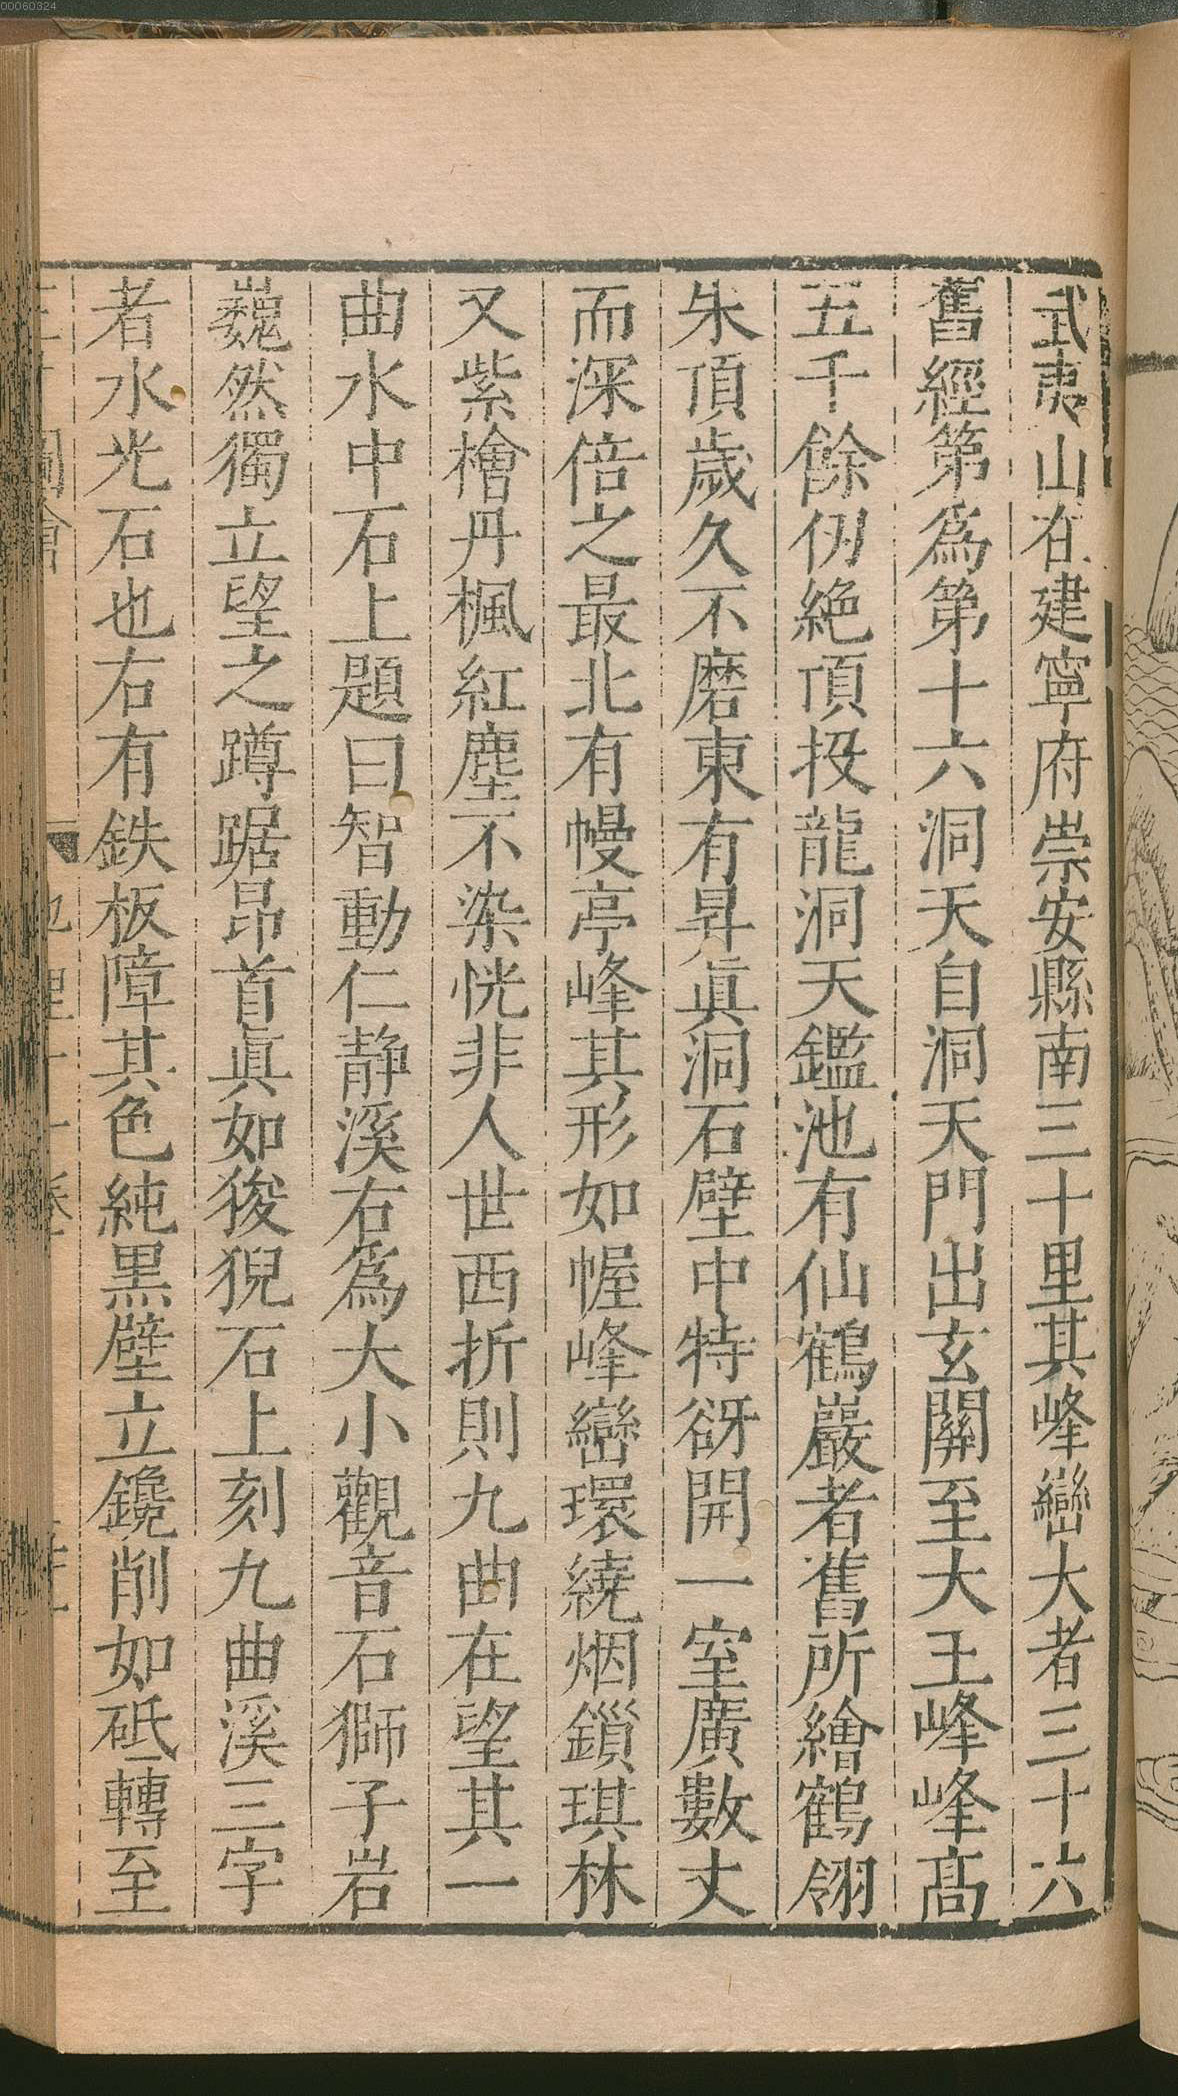 00060324
武夷山在建寧府崇安縣南三十里其峰巒大者三十六
舊經第爲第十六洞天自洞天門出玄關至大王峰峰髙
五千餘仞絶頂投龍洞天鑑池有仙鶴巖者舊所繪鶴翎
朱頂歲久不磨東有昇眞洞石壁中特谺開一室廣數丈
而深倍之最北有幔亭峰其形如幄峰巒環繞烟鎖琪林
又紫檜丹楓紅塵不染恍非人世西折則九曲在望其一
曲水中石上題曰智動仁静溪右爲大小觀音石獅子岩
巍然獨立望之蹲踞昂首眞如狻猊石上刻九曲溪三字
者水光石也右有鉄板障其色純黒壁立鑱削如砥轉至
圖會 地理 十一卷